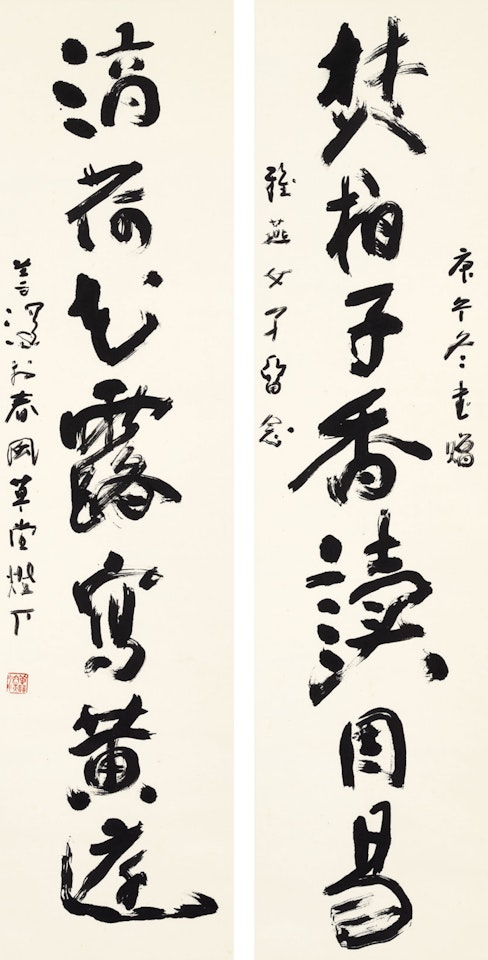 焚柏子香讀周易
庚午冬書贈
雅燕女子留念
滴荷花露寫黃庭
於春風草堂燈下